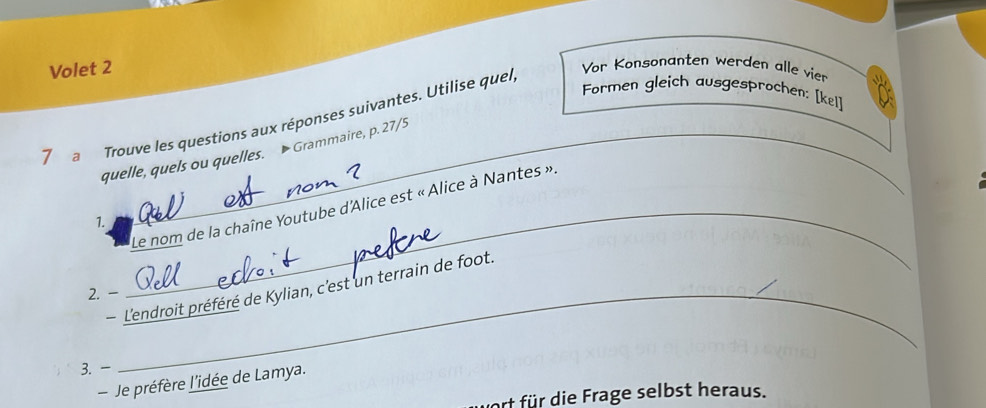 Volet 2
Vor Konsonanten werden alle vier
Formen gleich ausgesprochen: [kel]
7 a Trouve les questions aux réponses suivantes. Utilise quel,
quelle, quels ou quelles. ▶ Grammaire, p. 27/5
1. est nom ?
Le nom de la chaîne Youtube d'Alice est « Alice à Nantes ».
2. – Qell edroit prefere
– L'endroit préféré de Kylian, c'est un terrain de foot.
3. –
– Je préfère l'idée de Lamya.
für die Frage selbst heraus.